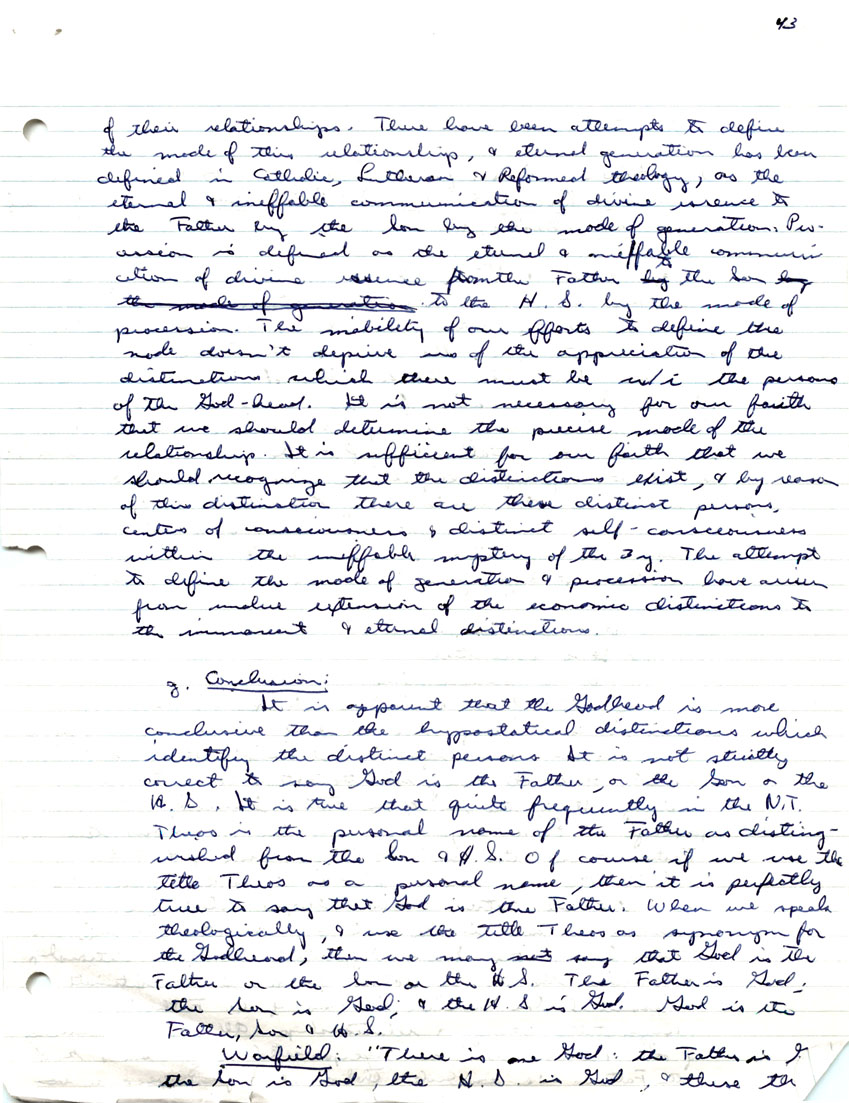 43
of their relationships. There have been attempts to define
the mode of this relationship, & eternal generation has been
defined in Catholic, Lutheran & Reformed theology, as the
eternal & ineffable communication of divine essence to
the Father by the Son by the mode of generation. Pro-
cession is defined as the eternal & ineffable communi
cation of divine essence from the Father by the Son by
the mode of generation to the H. S. by the mode of
procession. The inability of our efforts to define the
mode doesn't deprive us of the appreciation of the
distinctions which there must be w/i the persons
of the God-head. It is not necessary for our faith
that we should determine the precise mode of the
relationship. It is sufficient for our faith that we
should recognize that the distinctions exist, & by reason
of this distinction there are these distinct persons,
centers of consciousness & distinct self-consciousness
within the ineffable mystery of the 3y. The attempt
to define the mode of generation & procession have arisen
from undue extension of the economic distinctions to
the immanent & eternal distinctions.
g. Conclusion:
It is apparent that the Godhead is more
conclusive than the hypostatical distinctions which
identify the distinct persons It is not strictly
correct to say God is the Father, or the Son or the
H. S. It is true that quite frequently in the N.T.
Theos is the personal name of the Father as disting-
uished from the Son & H.S. Of course if we use the
title Theos as a personal name, then it is perfectly
true to say that God is the Father. When we speak
theologically, & use the title Theos as synonym for
the Godhead, then we may not say that God is the
Father or the Son or the H S. The Father is God;
the Son is God; & the H. S is God. God is the
Father, Son & H. S.
Warfield: "There is one God: the Father is G
the Son is God, the H. S. is God, & these th